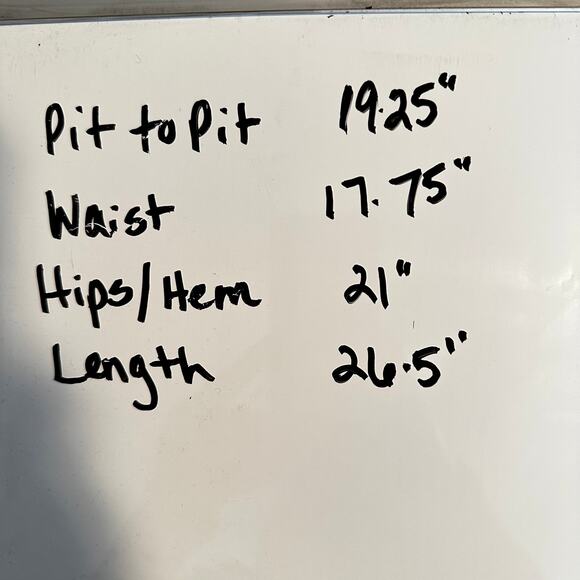 Pit to Pit 19.25"
Waist 17.75"
Hips/Hem 21"
Length 26.5"